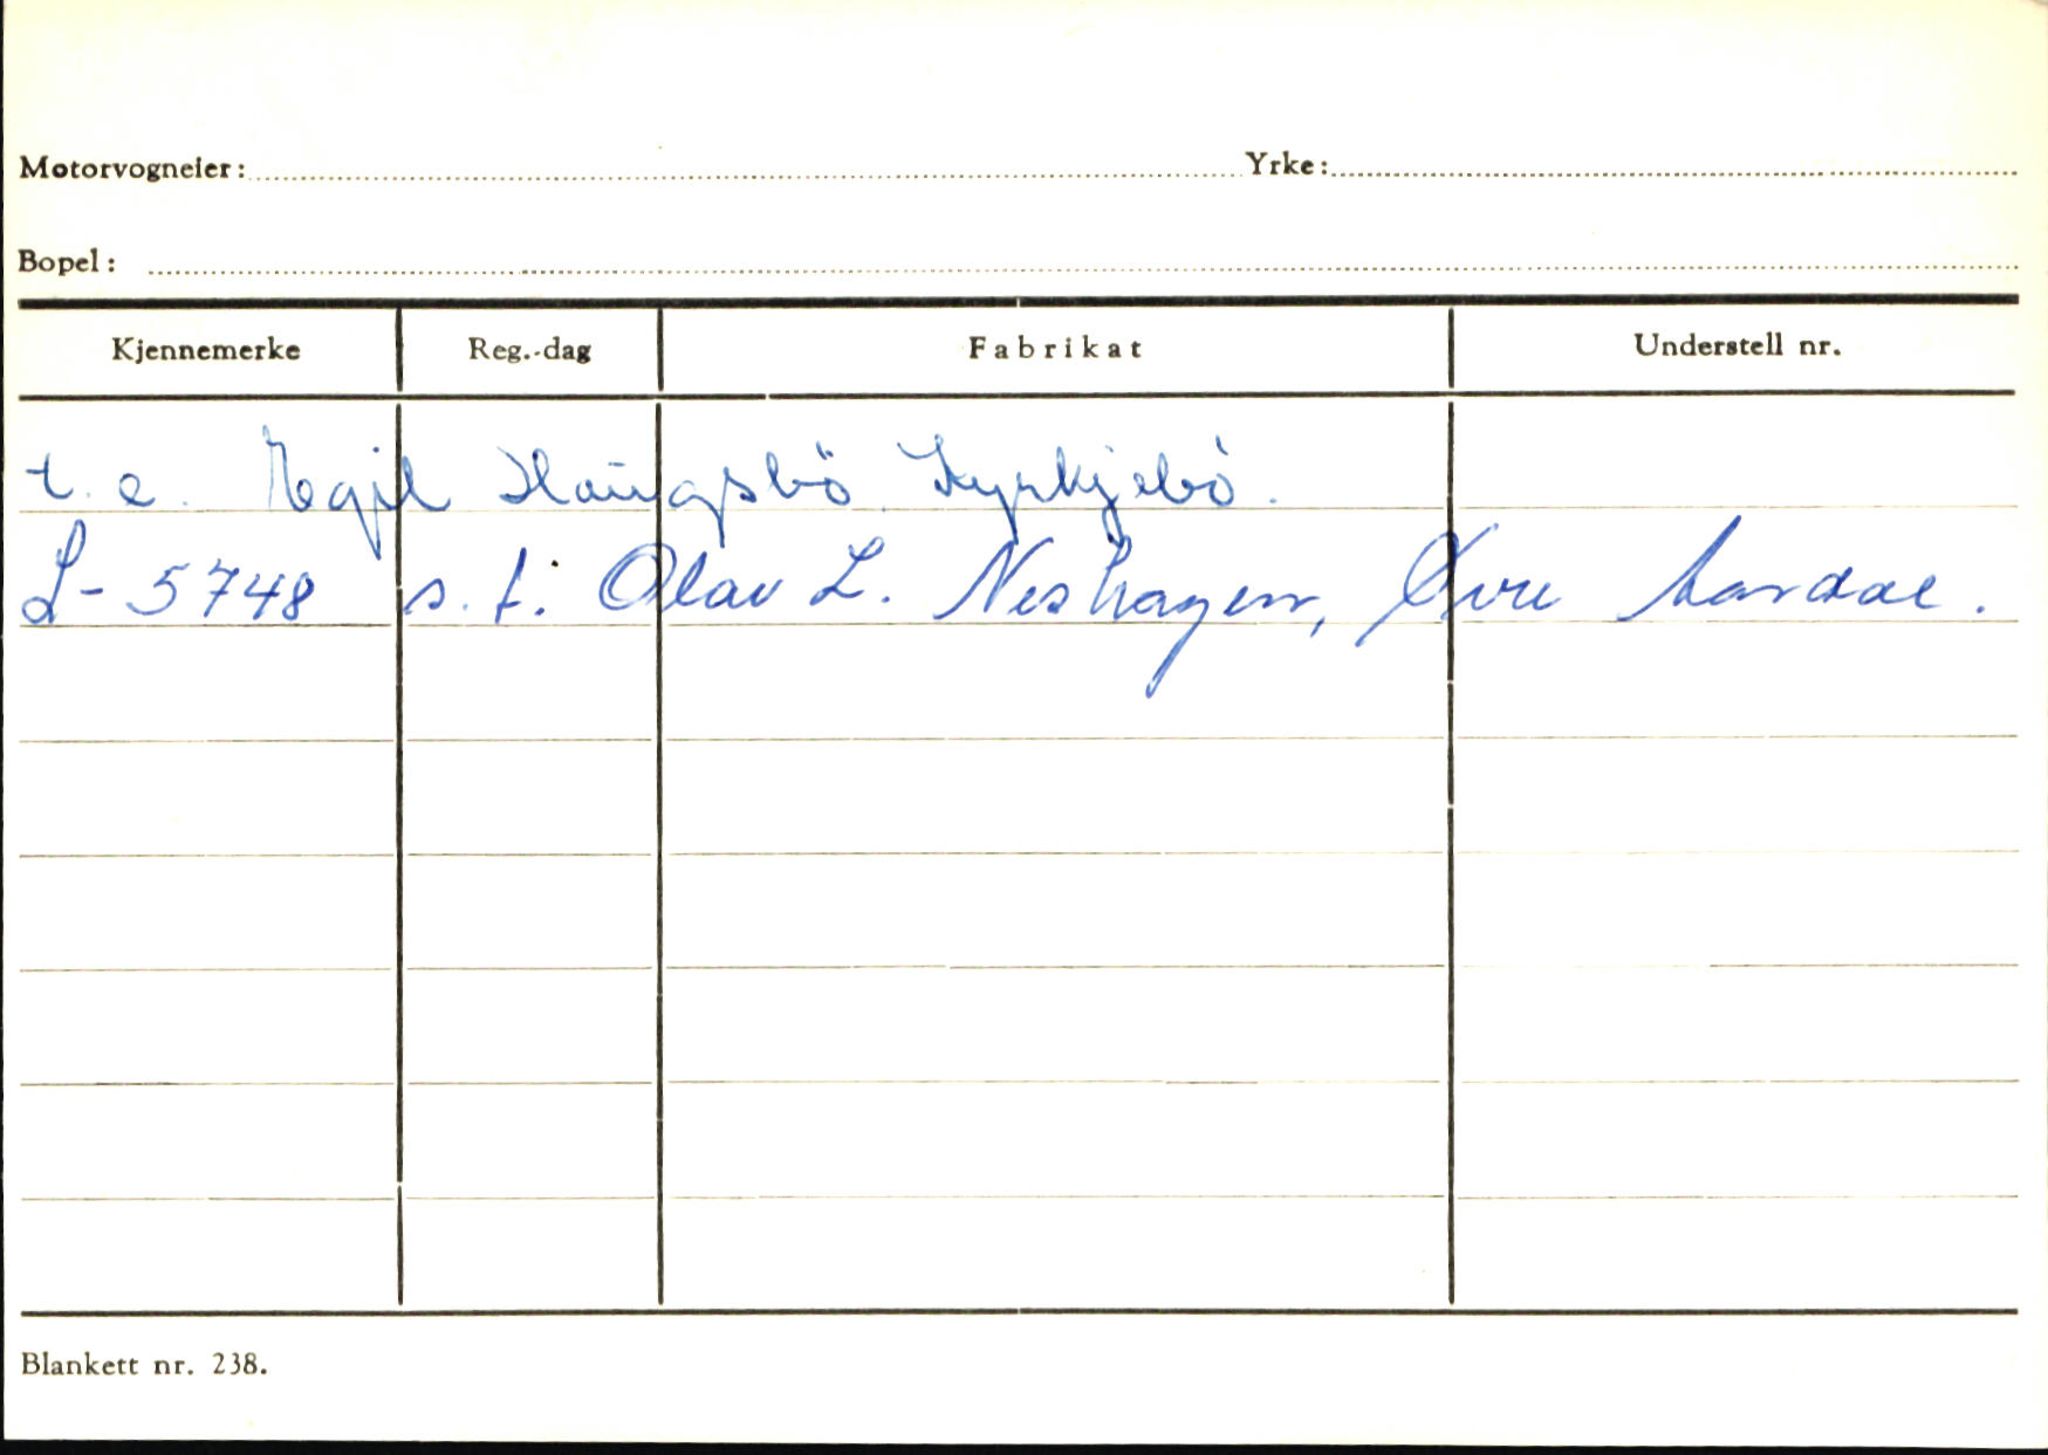 Motorvogneier: Yrke:
Bopel:
Kjennemerke Reg.-dag Fabrikat Understell nr.
t. e. Egil Haugsbö Kyrkjebö.
L-5748 s.t. Olav L. Neshagen, Øvre Aardal.
Blankett nr. 238.